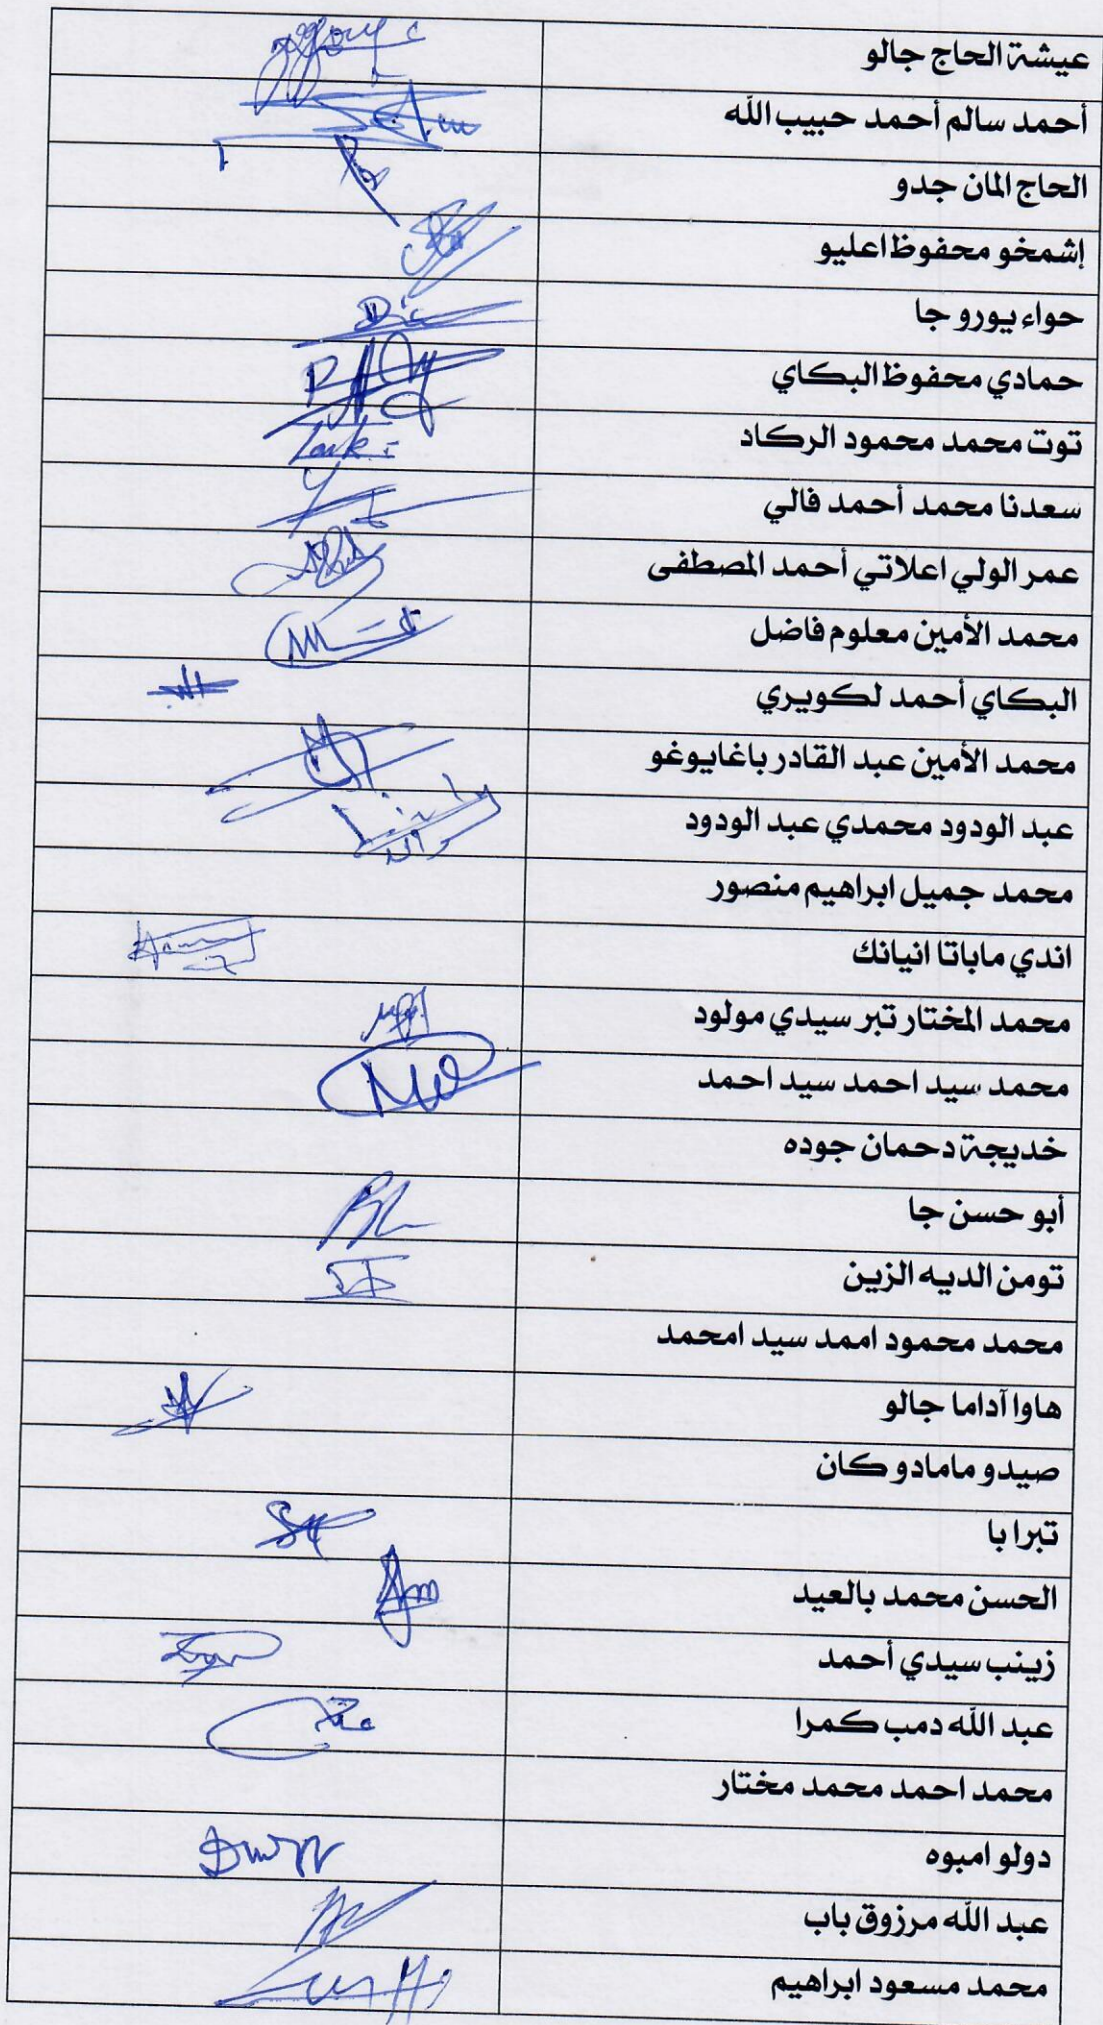 عيشة الحاج جالو
أحمد سالم أحمد حبيب الله
الحاج المان جدو
إشمخو محفوظ اعليو
حواء يورو جا
حمادي محفوظ البكاي
توت محمد محمود الركاد
سعدنا محمد أحمد فالي
عمر الولي اعلاتي أحمد المصطفى
محمد الأمين معلوم فاضل
البكاي أحمد لكويري
محمد الأمين عبد القادر باغايوغو
عبد الودود محمدي عبد الودود
محمد جميل ابراهيم منصور
اندي ماباتا انيانك
محمد المختار تبر سيدي مولود
محمد سيد احمد سيد احمد
خديجة دحمان جوده
أبو حسن جا
تومن الديه الزين
محمد محمود اممد سيد امحمد
هاوا آداما جالو
صيدو مامادو كان
تبرا با
الحسن محمد بالعيد
زينب سيدي أحمد
عبد الله دمب كمرا
محمد احمد محمد مختار
دولو امبوه
عبد الله مرزوق باب
محمد مسعود ابراهيم